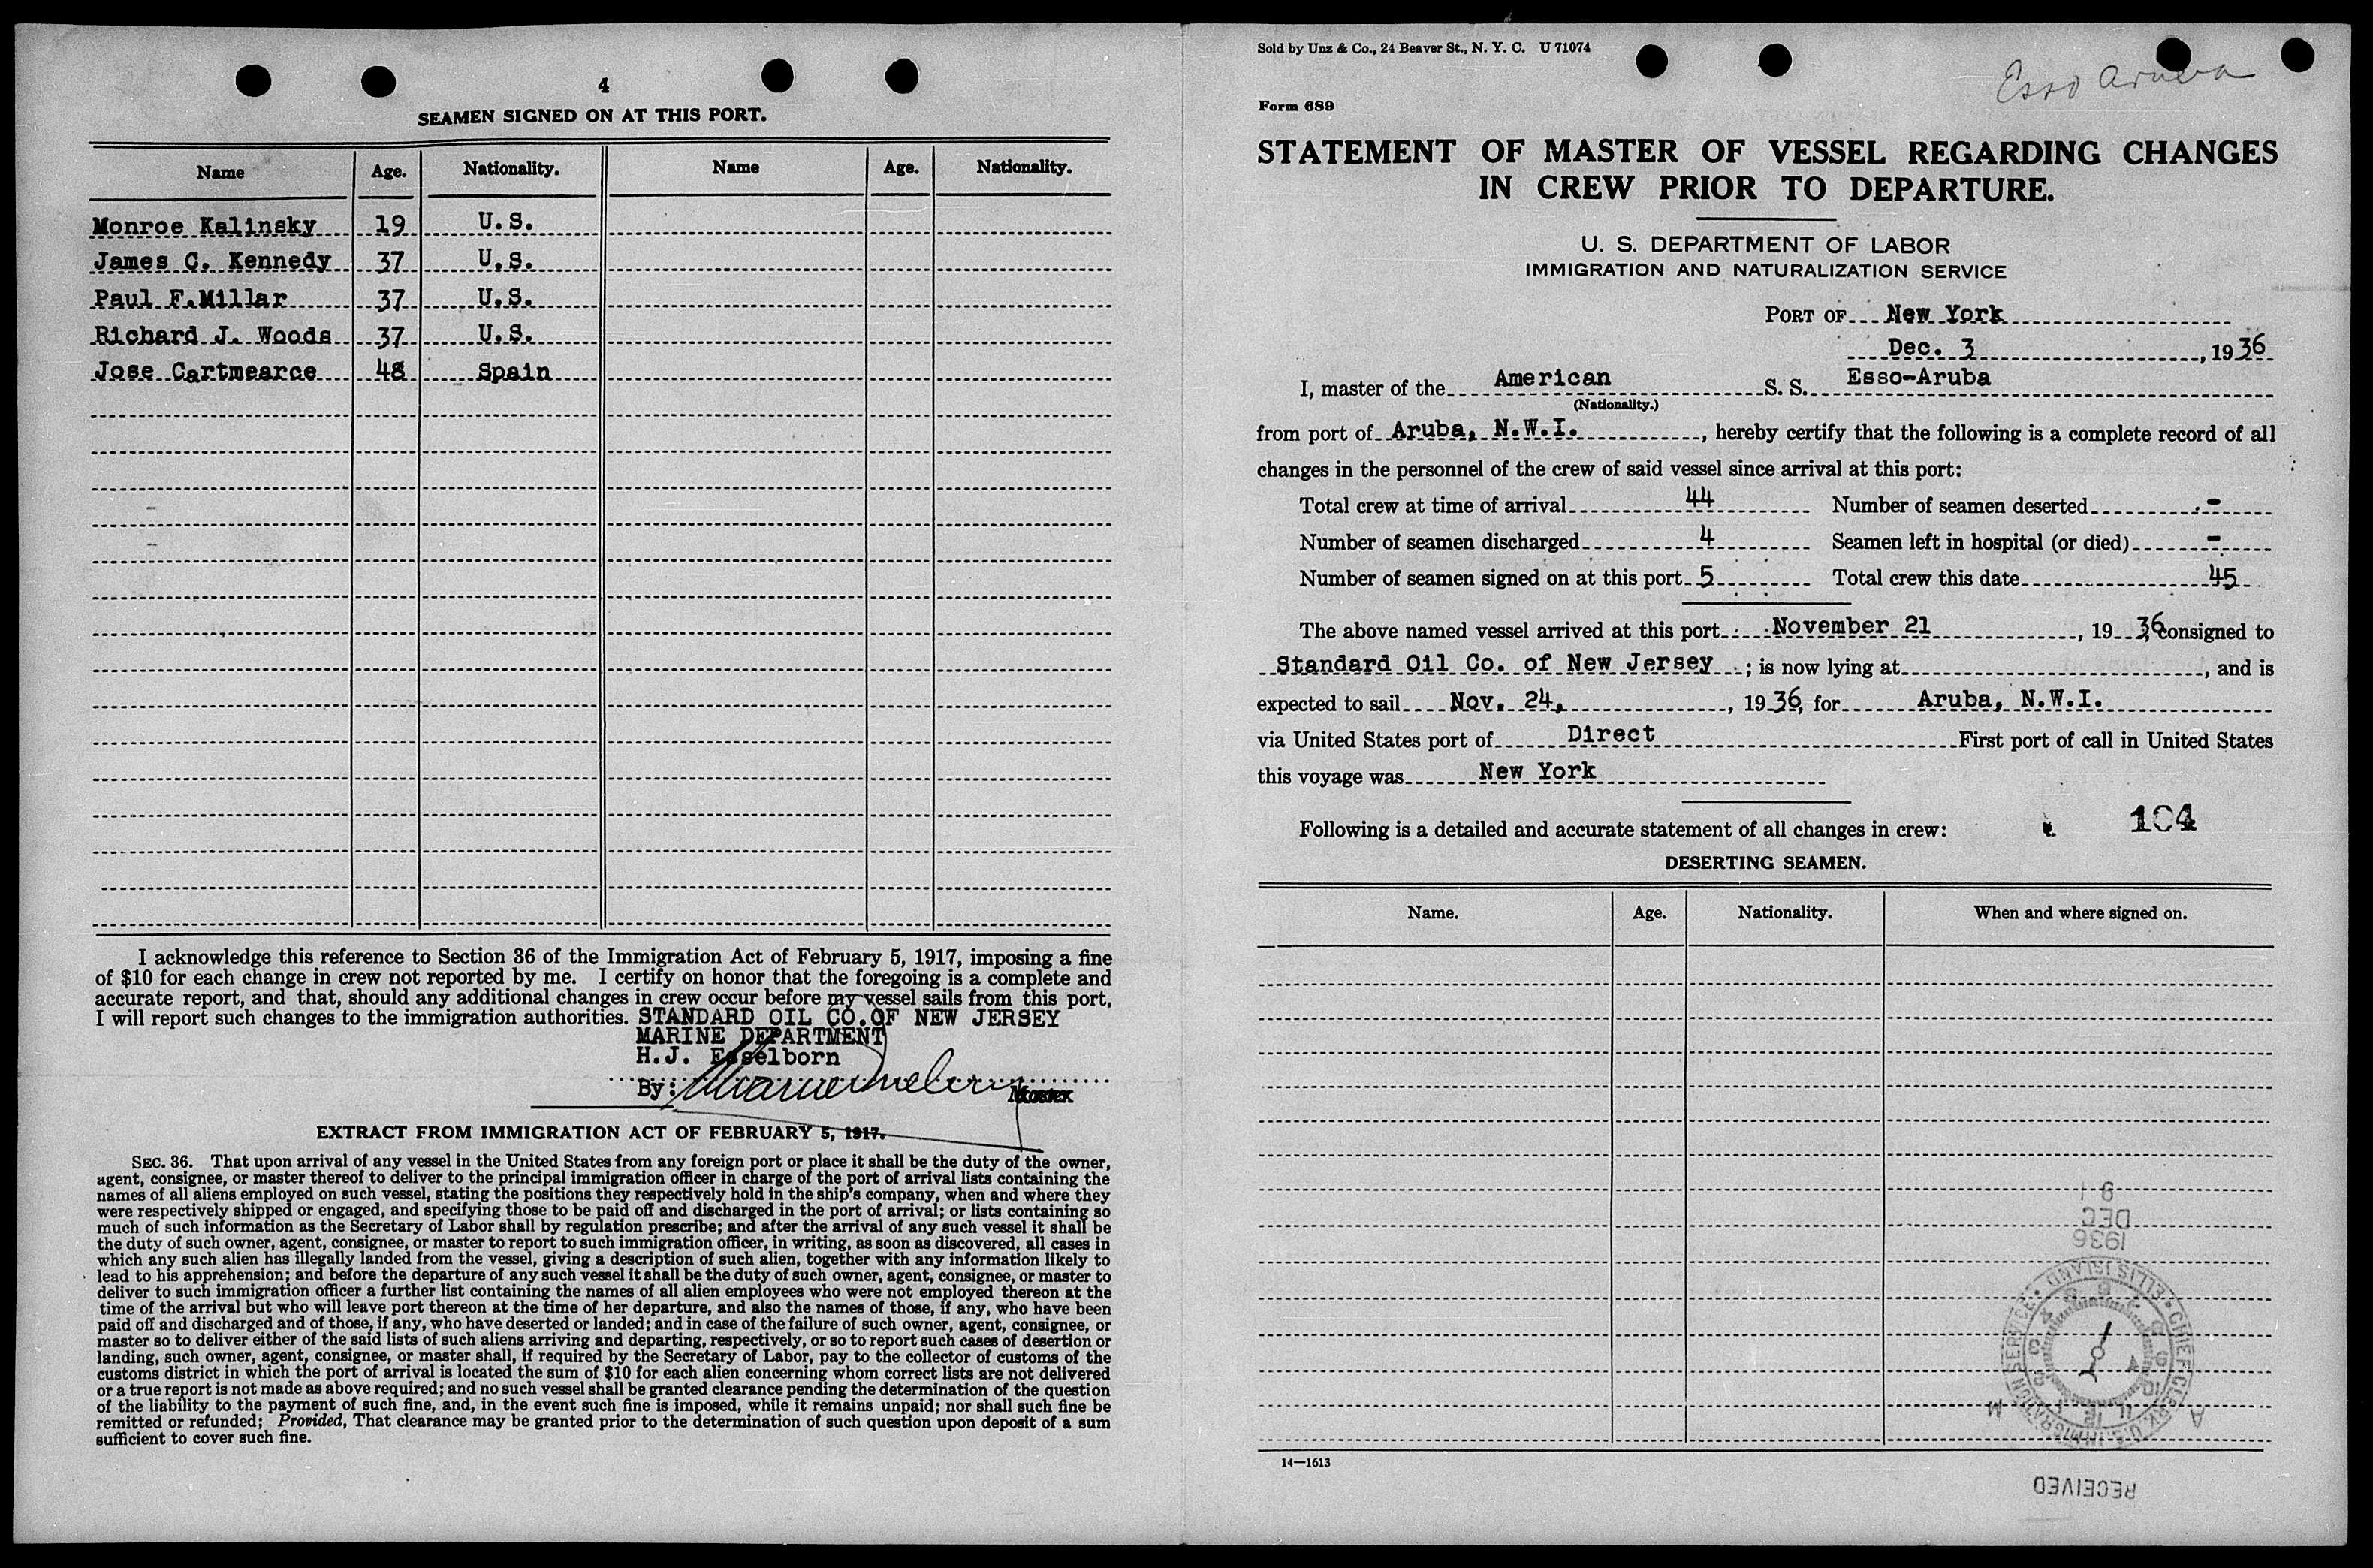 4
SEAMEN SIGNED ON AT THIS PORT.
Name Age. Nationality. Name Age. Nationality.
Monroe Kalinsky 19 U.S.
James C. Kennedy 37 U.S.
Paul F. Millar 37 U.S.
Richard J. Woods 37 U.S.
Jose Cartmearce 48 Spain
I acknowledge this reference to Section 36 of the Immigration Act of February 5, 1917, imposing a fine
of $10 for each change in crew not reported by me. I certify on honor that the foregoing is a complete and
accurate report, and that, should any additional changes in crew occur before my vessel sails from this port,
I will report such changes to the immigration authorities. STANDARD OIL CO. OF NEW JERSEY
MARINE DEPARTMENT
H.J. Esselborn
By:
Master
EXTRACT FROM IMMIGRATION ACT OF FEBRUARY 5, 1917.
SEC. 36. That upon arrival of any vessel in the United States from any foreign port or place it shall be the duty of the owner,
agent, consignee, or master thereof to deliver to the principal immigration officer in charge of the port of arrival lists containing the
names of all aliens employed on such vessel, stating the positions they respectively hold in the ship's company, when and where they
were respectively shipped or engaged, and specifying those to be paid off and discharged in the port of arrival; or lists containing so
much of such information as the Secretary of Labor shall by regulation prescribe; and after the arrival of any such vessel it shall be
the duty of such owner, agent, consignee, or master to report to such immigration officer, in writing, as soon as discovered, all cases in
which any such alien has illegally landed from the vessel, giving a description of such alien, together with any information likely to
lead to his apprehension; and before the departure of any such vessel it shall be the duty of such owner, agent, consignee, or master to
deliver to such immigration officer a further list containing the names of all alien employees who were not employed thereon at the
time of the arrival but who will leave port thereon at the time of her departure, and also the names of those, if any, who have been
paid off and discharged and of those, if any, who have deserted or landed; and in case of the failure of such owner, agent, consignee, or
master so to deliver either of the said lists of such aliens arriving and departing, respectively, or so to report such cases of desertion or
landing, such owner, agent, consignee, or master shall, if required by the Secretary of Labor, pay to the collector of customs of the
customs district in which the port of arrival is located the sum of $10 for each alien concerning whom correct lists are not delivered
or a true report is not made as above required; and no such vessel shall be granted clearance pending the determination of the question
of the liability to the payment of such fine, and, in the event such fine is imposed, while it remains unpaid; nor shall such fine be
remitted or refunded; Provided, That clearance may be granted prior to the determination of such question upon deposit of a sum
sufficient to cover such fine.
Sold by Unz & Co., 24 Beaver St., N. Y. C. U 71074
Esso Aruba
Form 689
STATEMENT OF MASTER OF VESSEL REGARDING CHANGES
IN CREW PRIOR TO DEPARTURE.
U. S. DEPARTMENT OF LABOR
IMMIGRATION AND NATURALIZATION SERVICE
PORT OF New York
Dec. 3, 1936
I, master of the American S. S. Esso-Aruba
(Nationality.)
from port of Aruba, N.W.I., hereby certify that the following is a complete record of all
changes in the personnel of the crew of said vessel since arrival at this port:
Total crew at time of arrival 44 Number of seamen deserted -
Number of seamen discharged 4 Seamen left in hospital (or died) -
Number of seamen signed on at this port 5 Total crew this date 45
The above named vessel arrived at this port November 21, 19 36, consigned to
Standard Oil Co. of New Jersey; is now lying at , and is
expected to sail Nov. 24, , 19 36, for Aruba, N.W.I.
via United States port of Direct First port of call in United States
this voyage was New York
Following is a detailed and accurate statement of all changes in crew: 104
DESERTING SEAMEN.
Name. Age. Nationality. When and where signed on.
DEC
1936
CHIEF CLERK, U.S. IMMIGRATION SERVICE, ELLIS ISLAND
A M
14—1613
RECEIVED